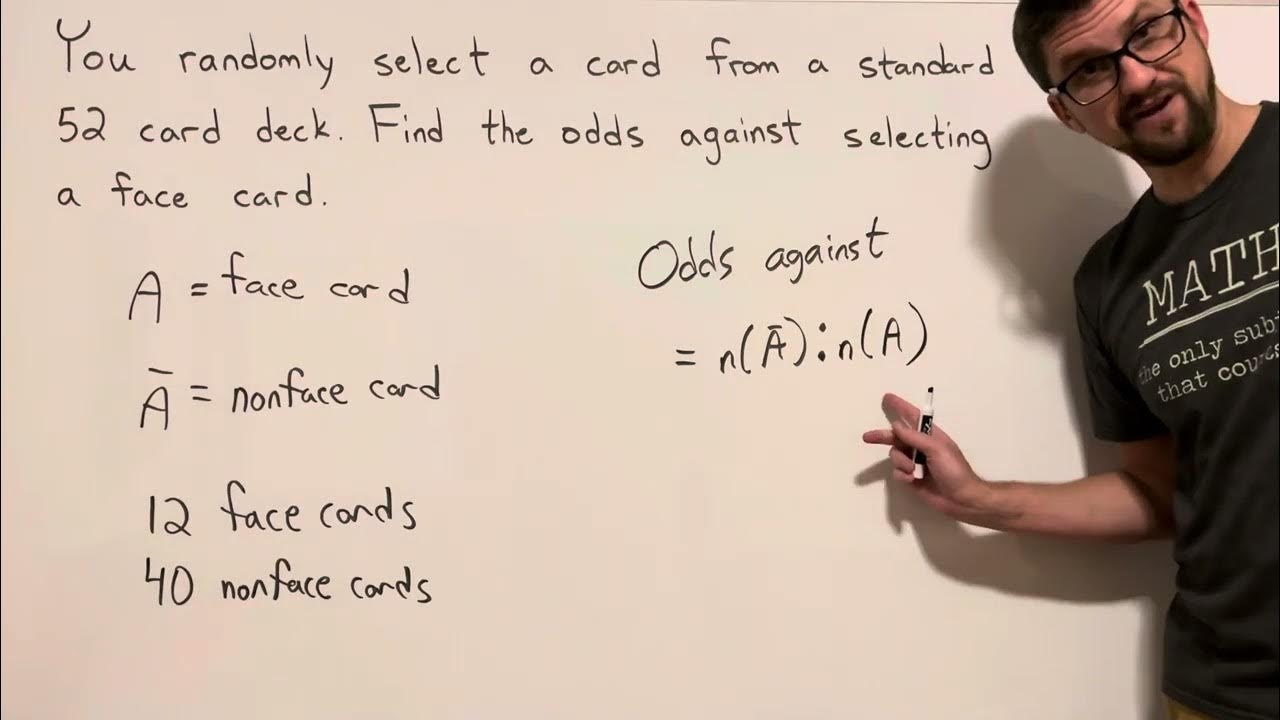 You randomly select a card from a standard
52 card deck. Find the odds against selecting
a face card.
A = face card
Ā = nonface card
12 face cards
40 nonface cards
Odds against
= n(Ā):n(A)
MATH
the only
that